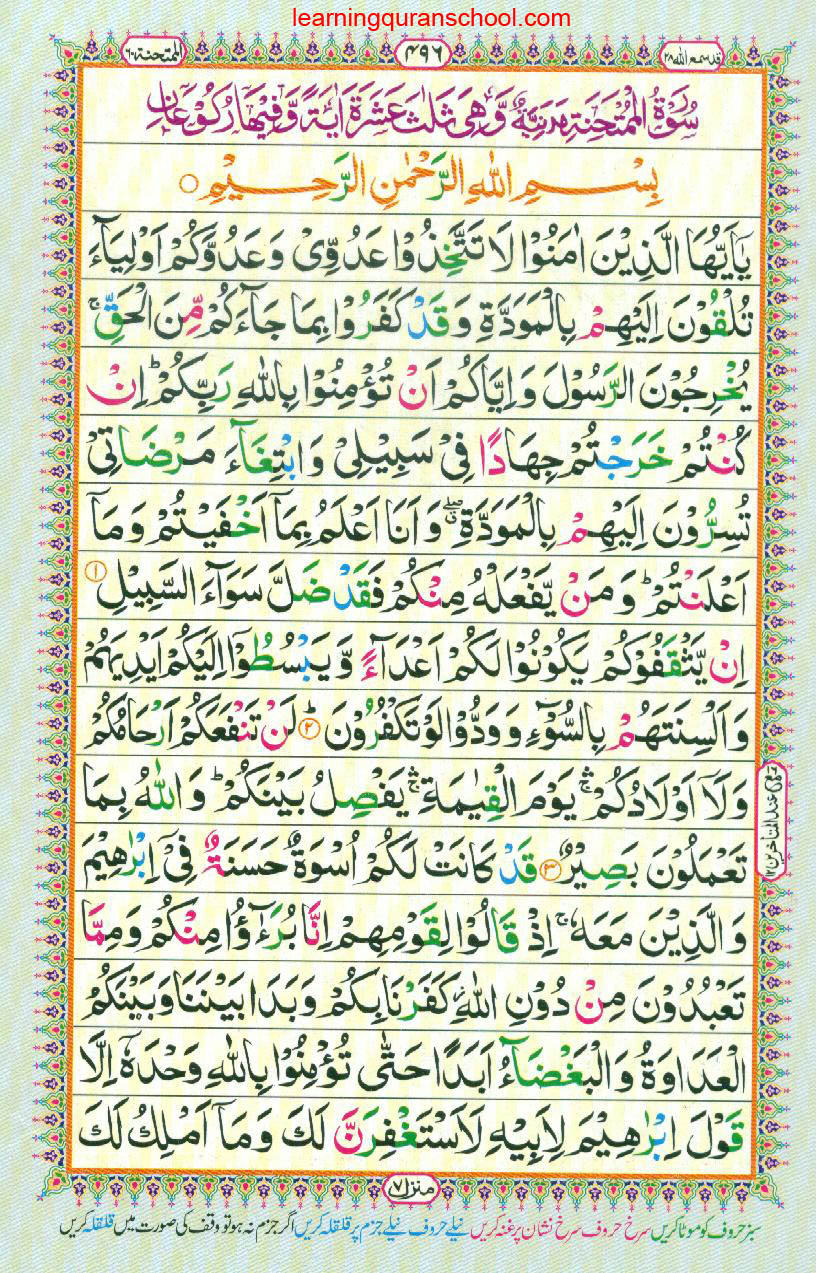 learningquranschool.com
قد سمع الله ٢٨
۴۹۶
الممتحنة ٦٠
سُوْرَةُ الْمُمْتَحِنَةِ مَدَنِيَّةٌ وَّهِىَ ثَلٰثَ عَشَرَةَ اٰيَةً وَّفِيْهَا رُكُوْعَانِ
بِسْمِ اللّٰهِ الرَّحْمٰنِ الرَّحِيْمِ ○
يٰۤاَيُّهَا الَّذِيْنَ اٰمَنُوْا لَا تَتَّخِذُوْا عَدُوِّىْ وَعَدُوَّكُمْ اَوْلِيَآءَ
تُلْقُوْنَ اِلَيْهِمْ بِالْمَوَدَّةِ وَقَدْ كَفَرُوْا بِمَا جَآءَكُمْ مِّنَ الْحَقِّ ۚ
يُخْرِجُوْنَ الرَّسُوْلَ وَاِيَّاكُمْ اَنْ تُؤْمِنُوْا بِاللّٰهِ رَبِّكُمْ ؕ اِنْ
كُنْتُمْ خَرَجْتُمْ جِهَادًا فِىْ سَبِيْلِىْ وَابْتِغَآءَ مَرْضَاتِىْ
تُسِرُّوْنَ اِلَيْهِمْ بِالْمَوَدَّةِ ۖۗ وَاَنَا اَعْلَمُ بِمَاۤ اَخْفَيْتُمْ وَمَاۤ
اَعْلَنْتُمْ ؕ وَمَنْ يَّفْعَلْهُ مِنْكُمْ فَقَدْ ضَلَّ سَوَآءَ السَّبِيْلِ ①
اِنْ يَّثْقَفُوْكُمْ يَكُوْنُوْا لَكُمْ اَعْدَآءً وَّيَبْسُطُوْۤا اِلَيْكُمْ اَيْدِيَهُمْ
وَاَلْسِنَتَهُمْ بِالسُّوْٓءِ وَوَدُّوْا لَوْ تَكْفُرُوْنَ ؕ② لَنْ تَنْفَعَكُمْ اَرْحَامُكُمْ
وَلَاۤ اَوْلَادُكُمْ ۛۚ يَوْمَ الْقِيٰمَةِ ۛۚ يَفْصِلُ بَيْنَكُمْ ؕ وَاللّٰهُ بِمَا
تَعْمَلُوْنَ بَصِيْرٌ ③ قَدْ كَانَتْ لَكُمْ اُسْوَةٌ حَسَنَةٌ فِىْۤ اِبْرٰهِيْمَ
وَالَّذِيْنَ مَعَهٗ ۚ اِذْ قَالُوْا لِقَوْمِهِمْ اِنَّا بُرَءٰٓؤُا مِنْكُمْ وَمِمَّا
تَعْبُدُوْنَ مِنْ دُوْنِ اللّٰهِ كَفَرْنَا بِكُمْ وَبَدَا بَيْنَنَا وَبَيْنَكُمُ
الْعَدَاوَةُ وَالْبَغْضَآءُ اَبَدًا حَتّٰى تُؤْمِنُوْا بِاللّٰهِ وَحْدَهٗۤ اِلَّا
قَوْلَ اِبْرٰهِيْمَ لِاَبِيْهِ لَاَسْتَغْفِرَنَّ لَكَ وَمَاۤ اَمْلِكُ لَكَ
منزل ٧
سبز حروف کو موٹا کریں سرخ حروف سرخ نشان پر غنہ کریں نیلے حروف نیلے جزم پر قلقلہ کریں اگر جزم نہ ہو تو وقف کی صورت میں قلقلہ کریں